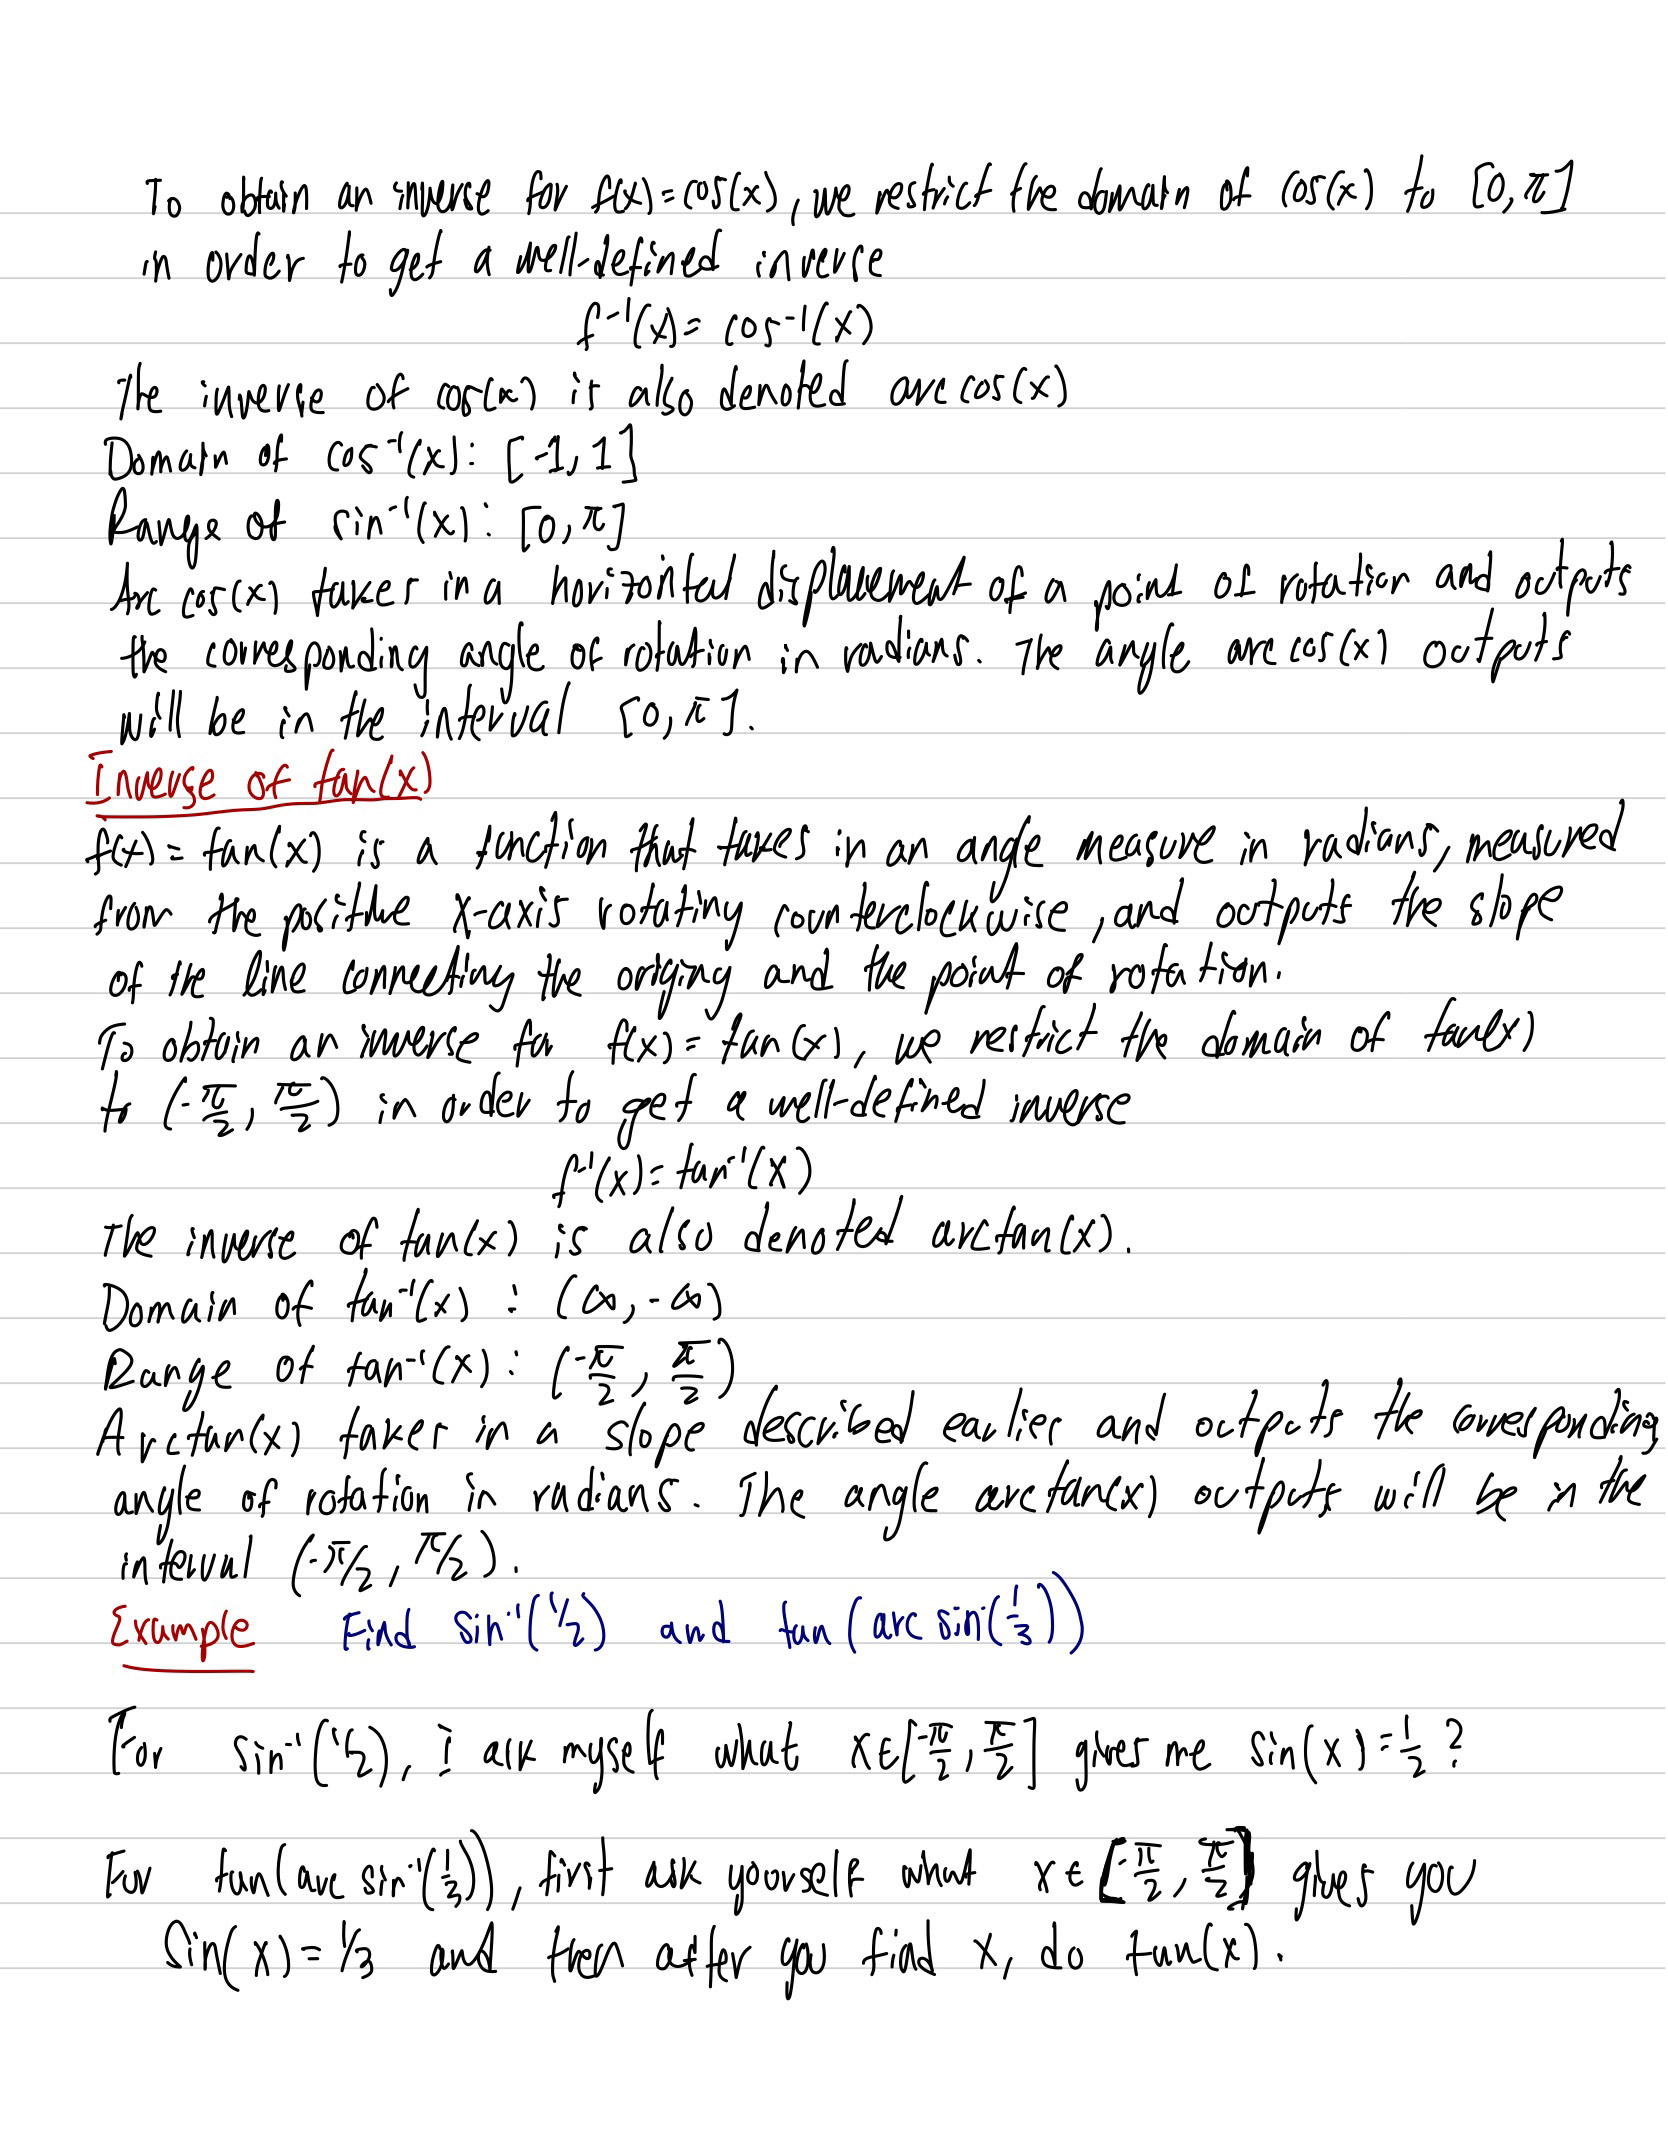 To obtain an inverse for f(x)=cos(x), we restrict the domain of cos(x) to [0,π]
in order to get a well-defined inverse
f⁻¹(x)= cos⁻¹(x)
The inverse of cos(x) is also denoted arccos(x)
Domain of cos⁻¹(x): [-1,1]
Range of sin⁻¹(x): [0,π]
Arc cos(x) takes in a horizontal displacement of a point of rotation and outputs
the corresponding angle of rotation in radians. The angle arccos(x) outputs
will be in the interval [0,π].
Inverse of tan(x)
f(x)= tan(x) is a function that takes in an angle measure in radians, measured
from the positive x-axis rotating counterclockwise, and outputs the slope
of the line connecting the origing and the point of rotation.
To obtain an inverse for f(x)= tan(x), we restrict the domain of tan(x)
to (-π/2, π/2) in order to get a well-defined inverse
f⁻¹(x)= tan⁻¹(x)
The inverse of tan(x) is also denoted arctan(x).
Domain of tan⁻¹(x) : (∞,-∞)
Range of tan⁻¹(x): (-π/2, π/2)
Arctan(x) takes in a slope described earlier and outputs the corresponding
angle of rotation in radians. The angle arctan(x) outputs will be in the
interval (-π/2, π/2).
Example Find sin⁻¹(1/2) and tan(arc sin(1/3))
For sin⁻¹(1/2), I ask myself what x∈[-π/2, π/2] gives me sin(x)=1/2?
For tan(arc sin⁻¹(1/3)), first ask yourself what x∈[-π/2, π/2] gives you
sin(x)=1/3 and then after you find x, do tan(x).